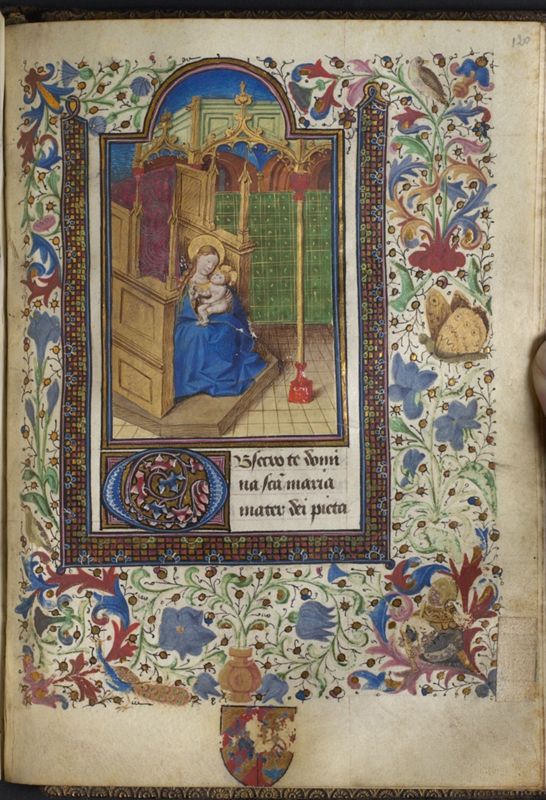 120
Obsecro te domi
na scā maria
mater dei pieta